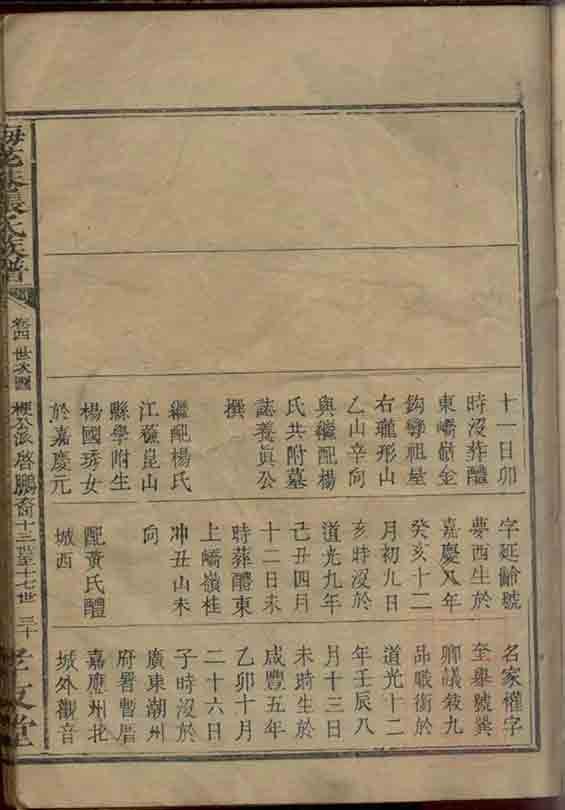 十一日卯
時沒葬醴
東嶠嶺金
鈎彎祖塋
右瓏形山
乙山辛向
與繼配楊
氏共附墓
誌養眞公
撰
繼配楊氏
江蘇崑山
縣學附生
楊國琇女
於嘉慶元
字延齡號
夢西生於
嘉慶八年
癸亥十二
月初九日
亥時沒於
道光九年
己丑四月
十二日未
時葬醴東
上嶠嶺桂
冲丑山未
向
配黃氏醴
城西
名家權字
至舉號巽
卿議敘九
品職銜於
道光十二
年壬辰八
月十三日
未時生於
咸豐五年
乙卯十月
二十六日
子時沒於
廣東潮州
府署暫厝
嘉應州北
城外觀音
張氏族譜
卷四 世次圖
公派啓鵬裔十三世至十七世 三十
孝友堂